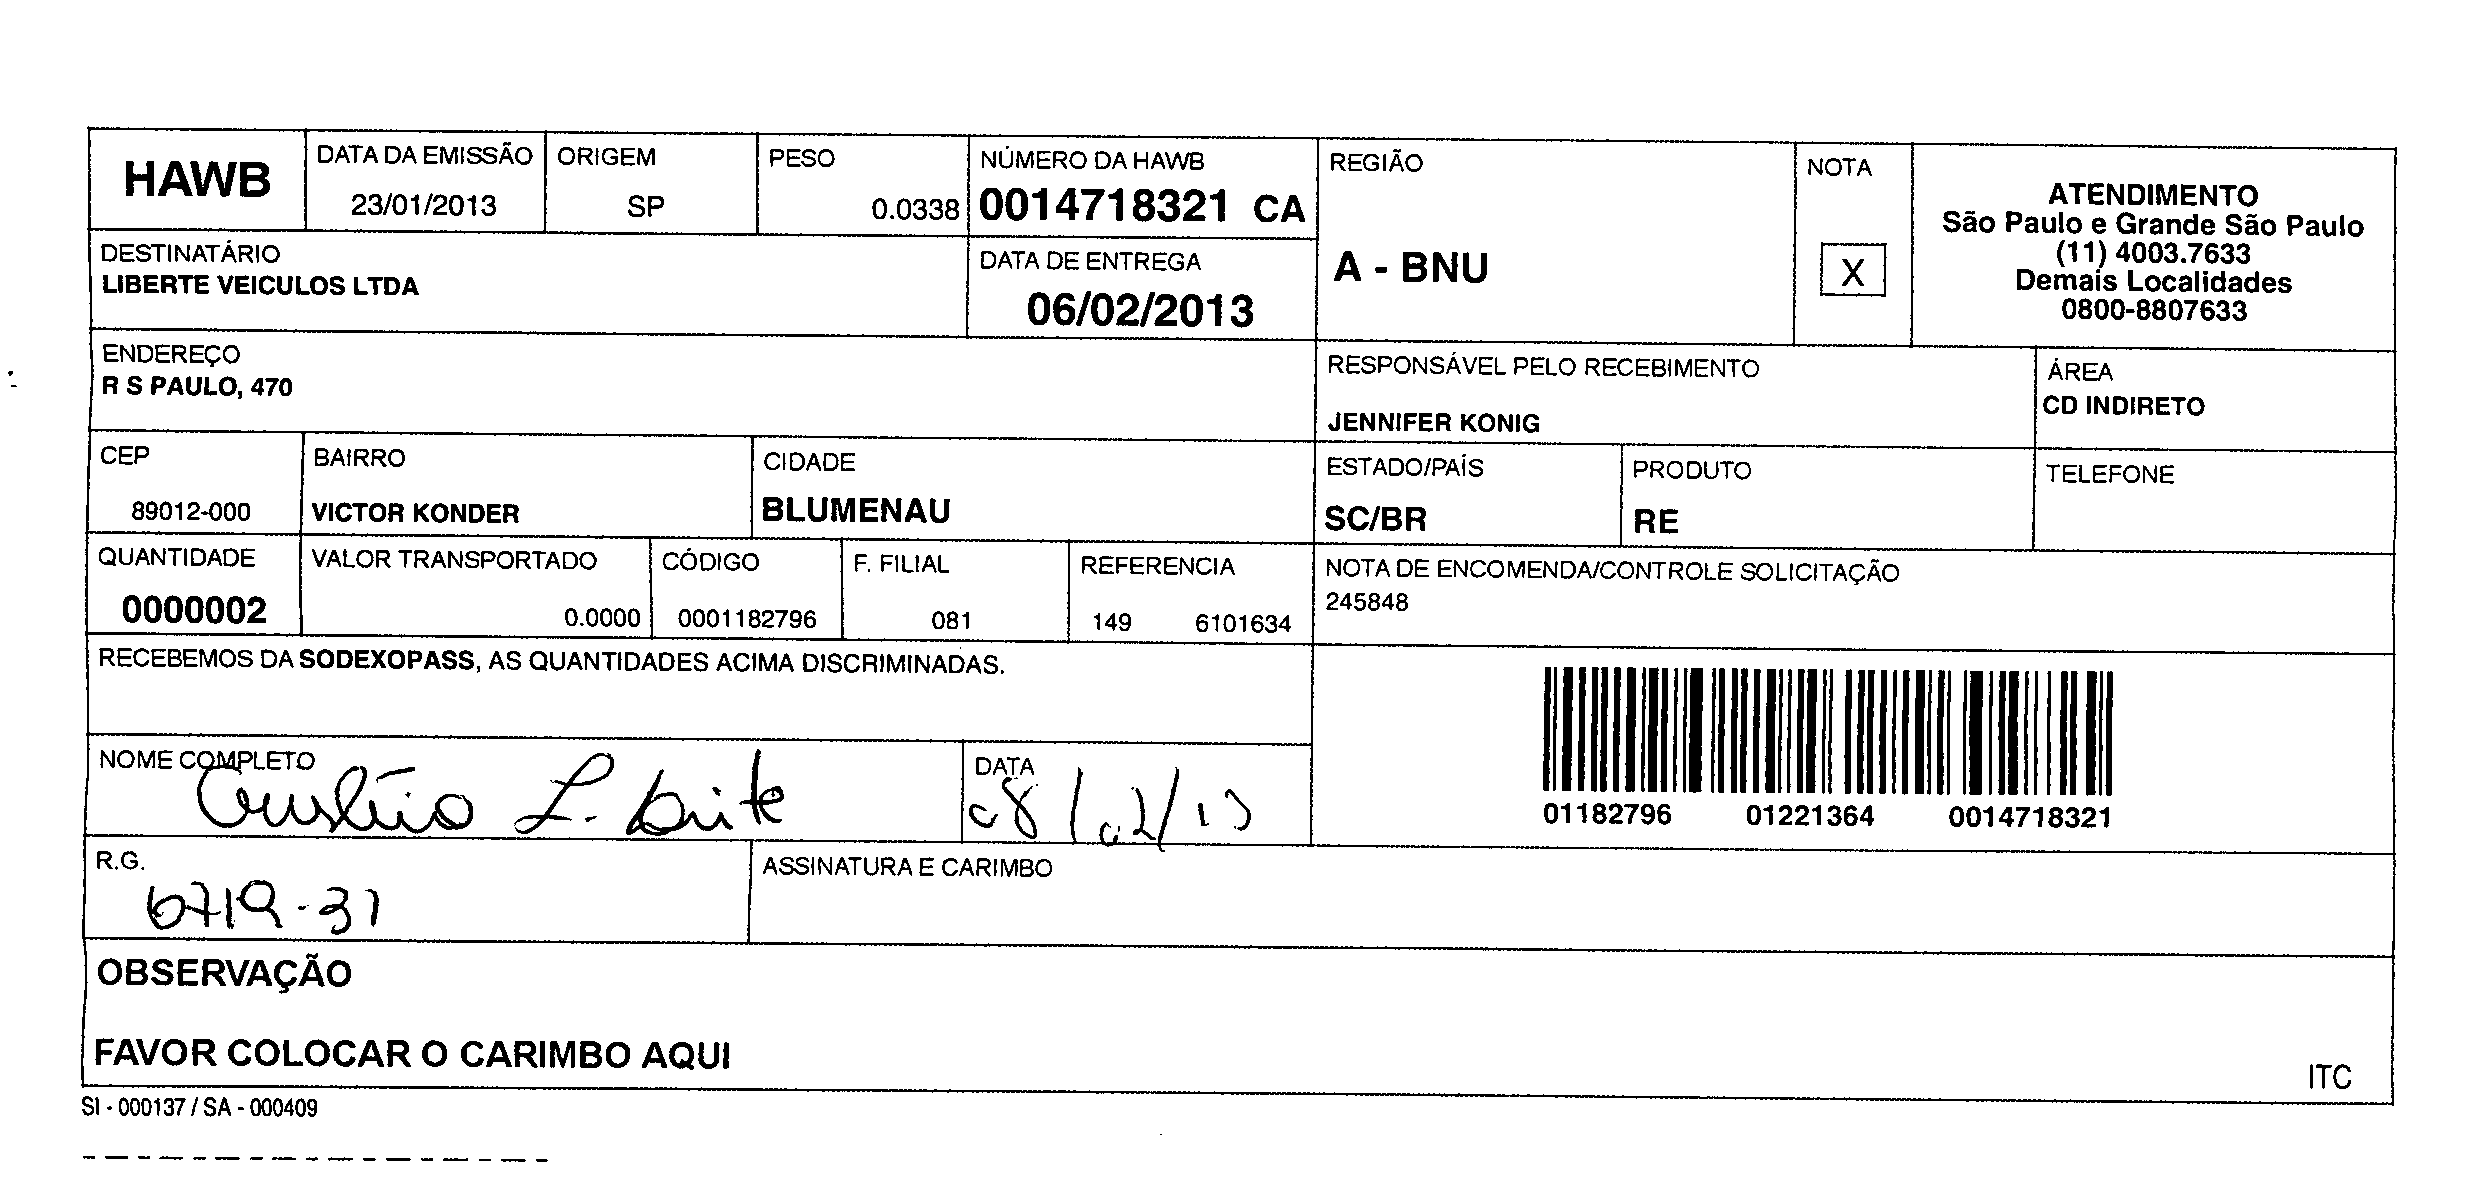 HAWB
DATA DA EMISSÃO
23/01/2013
ORIGEM
SP
PESO
0.0338
NÚMERO DA HAWB
0014718321 CA
REGIÃO
A - BNU
NOTA
X
ATENDIMENTO
São Paulo e Grande São Paulo
(11) 4003.7633
Demais Localidades
0800-8807633
DESTINATÁRIO
LIBERTE VEICULOS LTDA
DATA DE ENTREGA
06/02/2013
ENDEREÇO
R S PAULO, 470
RESPONSÁVEL PELO RECEBIMENTO
JENNIFER KONIG
ÁREA
CD INDIRETO
CEP
89012-000
BAIRRO
VICTOR KONDER
CIDADE
BLUMENAU
ESTADO/PAÍS
SC/BR
PRODUTO
RE
TELEFONE
QUANTIDADE
0000002
VALOR TRANSPORTADO
0.0000
CÓDIGO
0001182796
F. FILIAL
081
REFERENCIA
149 6101634
NOTA DE ENCOMENDA/CONTROLE SOLICITAÇÃO
245848
RECEBEMOS DA SODEXOPASS, AS QUANTIDADES ACIMA DISCRIMINADAS.
01182796 01221364 0014718321
NOME COMPLETO
L.
DATA
08/02/13
R.G.
6719-31
ASSINATURA E CARIMBO
OBSERVAÇÃO
FAVOR COLOCAR O CARIMBO AQUI
ITC
SI - 000137 / SA - 000409